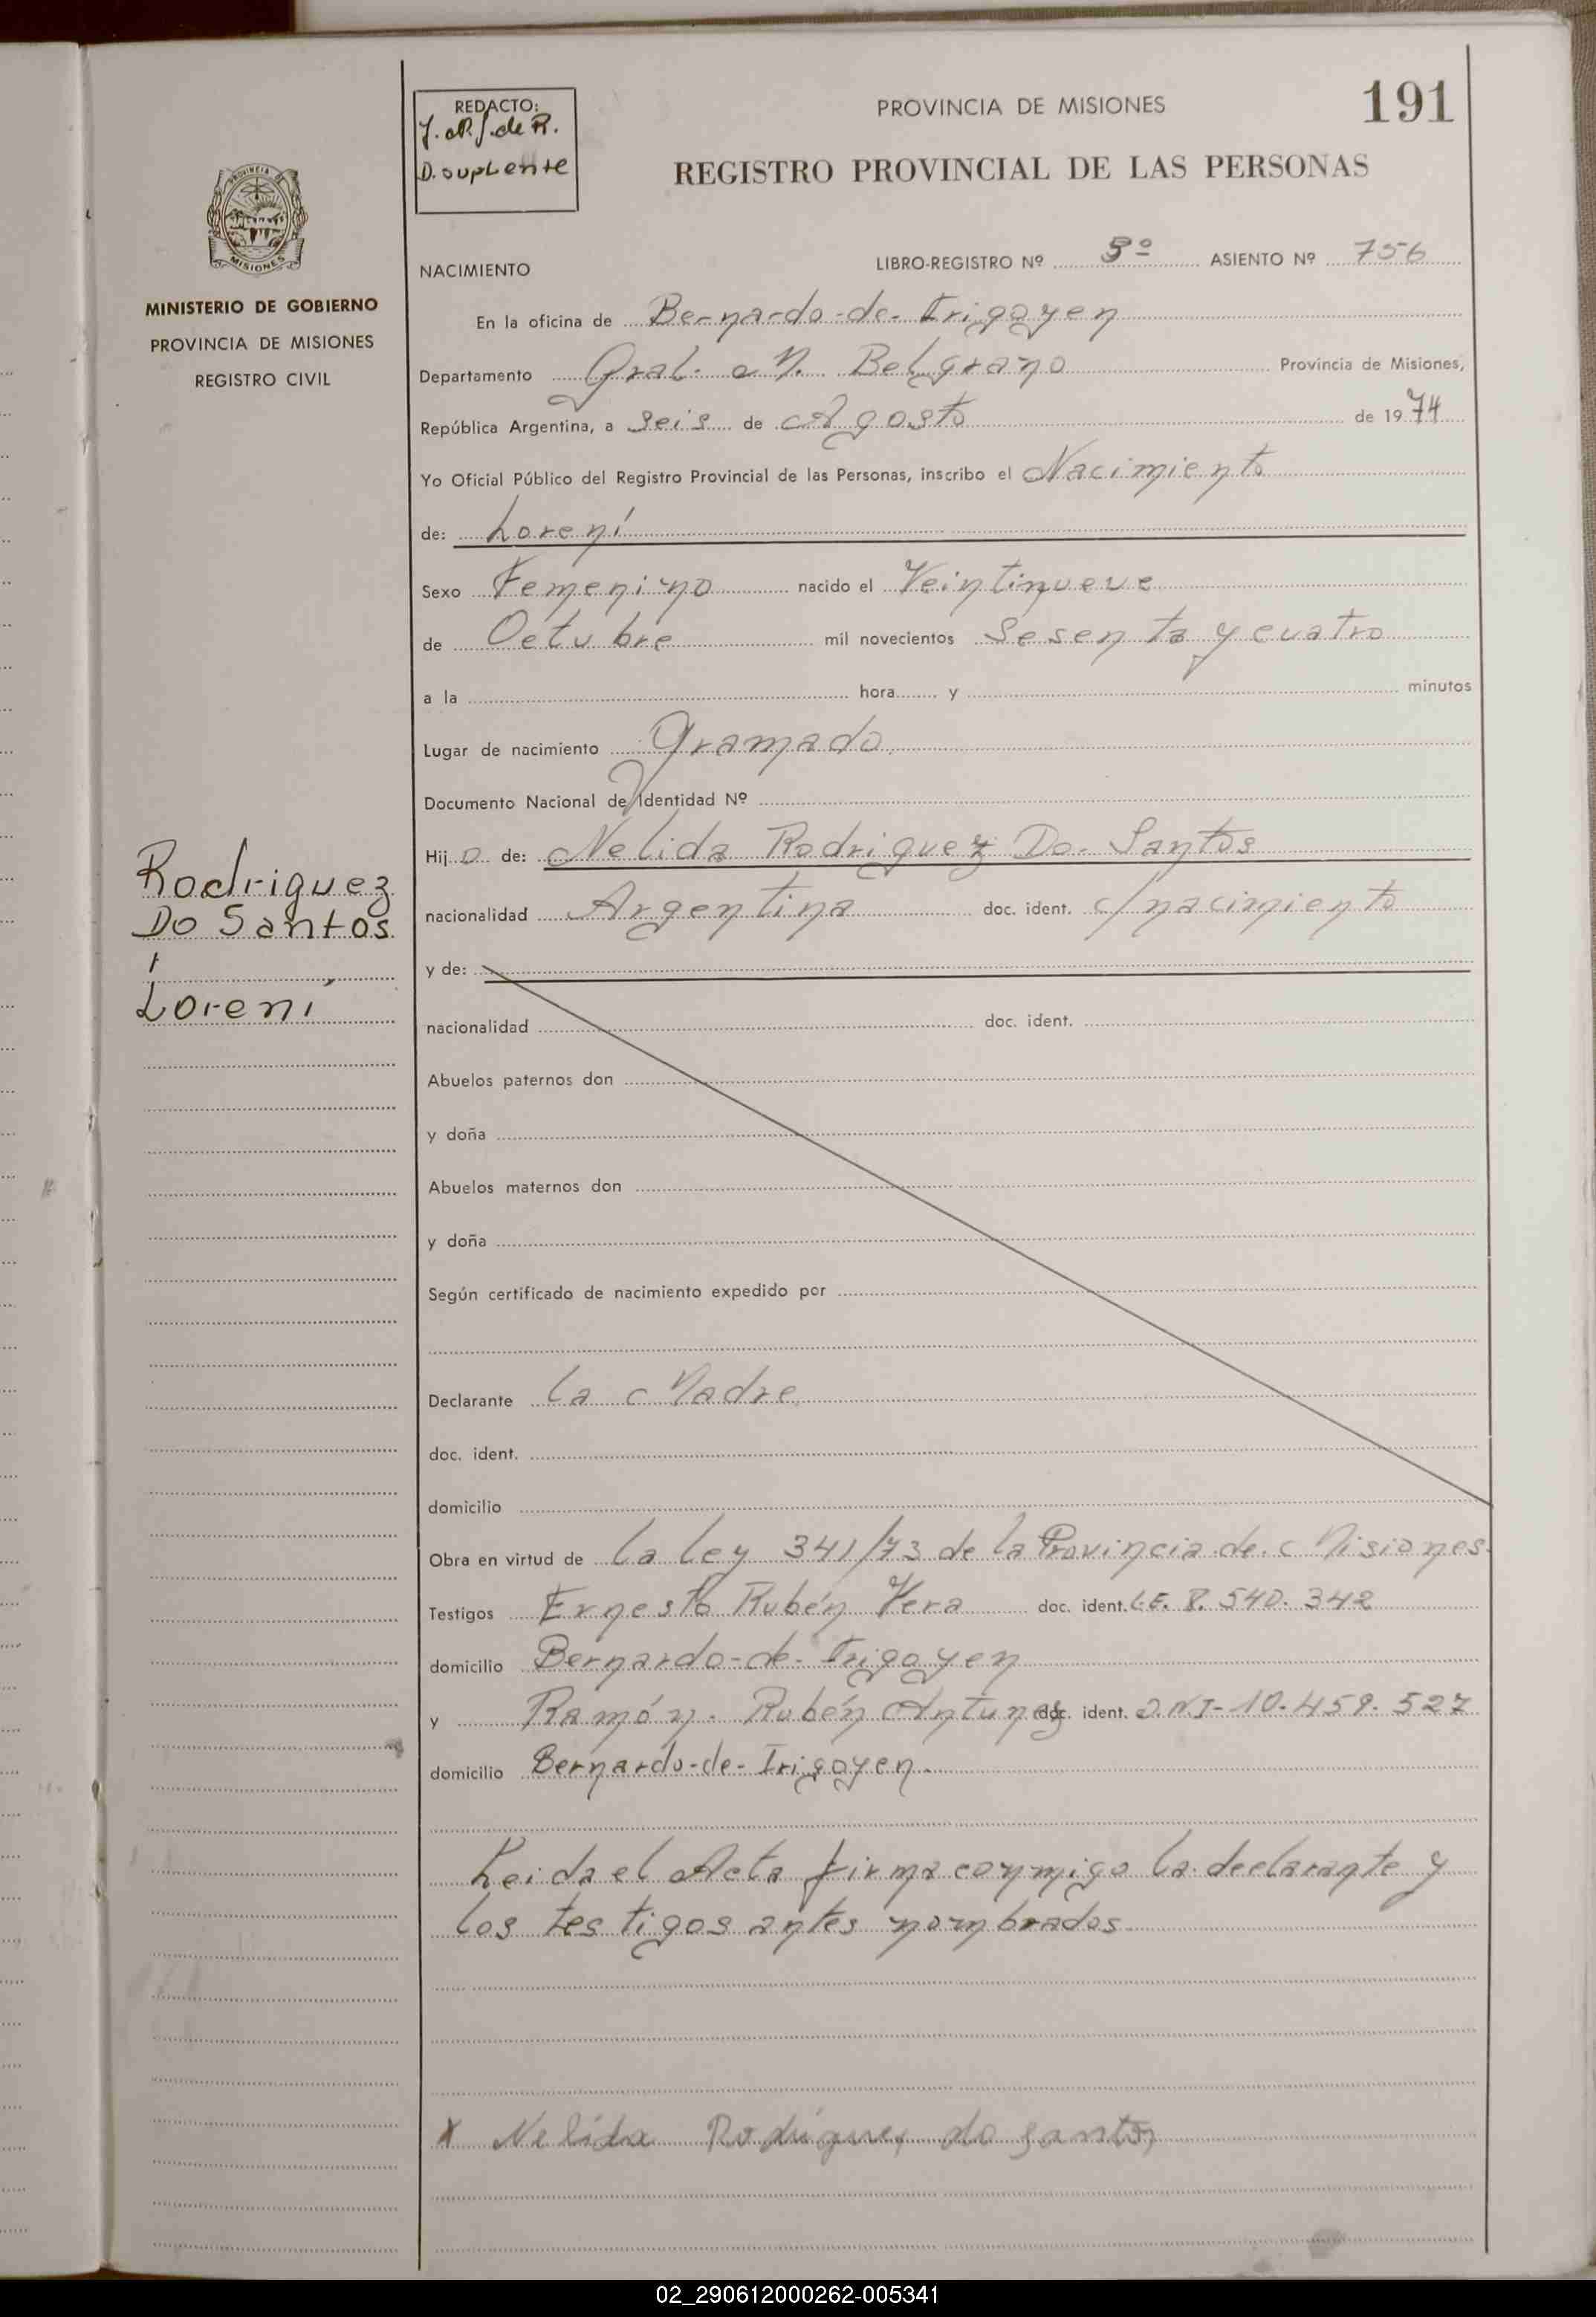 191
REDACTO:
D. suplente
PROVINCIA DE MISIONES
REGISTRO PROVINCIAL DE LAS PERSONAS
PROVINCIA DE
MISIONES
MINISTERIO DE GOBIERNO
PROVINCIA DE MISIONES
REGISTRO CIVIL
NACIMIENTO
LIBRO-REGISTRO Nº ASIENTO Nº 756
En la oficina de Bernardo-de-Irigoyen
Departamento Gral. M. Belgrano Provincia de Misiones,
República Argentina, a seis de Agosto de 1974
Yo Oficial Público del Registro Provincial de las Personas, inscribo el Nacimiento
de: Lorení
Sexo Femenino nacido el Veintinueve
de Octubre mil novecientos Sesenta y cuatro
a la hora y minutos
Lugar de nacimiento Gramado
Documento Nacional de Identidad Nº
Hij o de: Nelida Rodriguez Do Santos
nacionalidad Argentina doc. ident. c/nacimiento
y de:
Rodriguez
Do Santos
Lorení
nacionalidad doc. ident.
Abuelos paternos don
y doña
Abuelos maternos don
y doña
Según certificado de nacimiento expedido por
Declarante la Madre
doc. ident.
domicilio
Obra en virtud de la Ley 341/73 de la Provincia de Misiones.
Testigos Ernesto Rubén Vera doc. ident. L.E. 8.540.342
domicilio Bernardo-de-Irigoyen
y Ramón Rubén Antunes doc. ident. D.N.I-10.459.527
domicilio Bernardo-de-Irigoyen.
Leida el Acta firma conmigo la declarante y
los testigos antes nombrados.
x Nelida Rodriguez do Santos
02_290612000262-005341